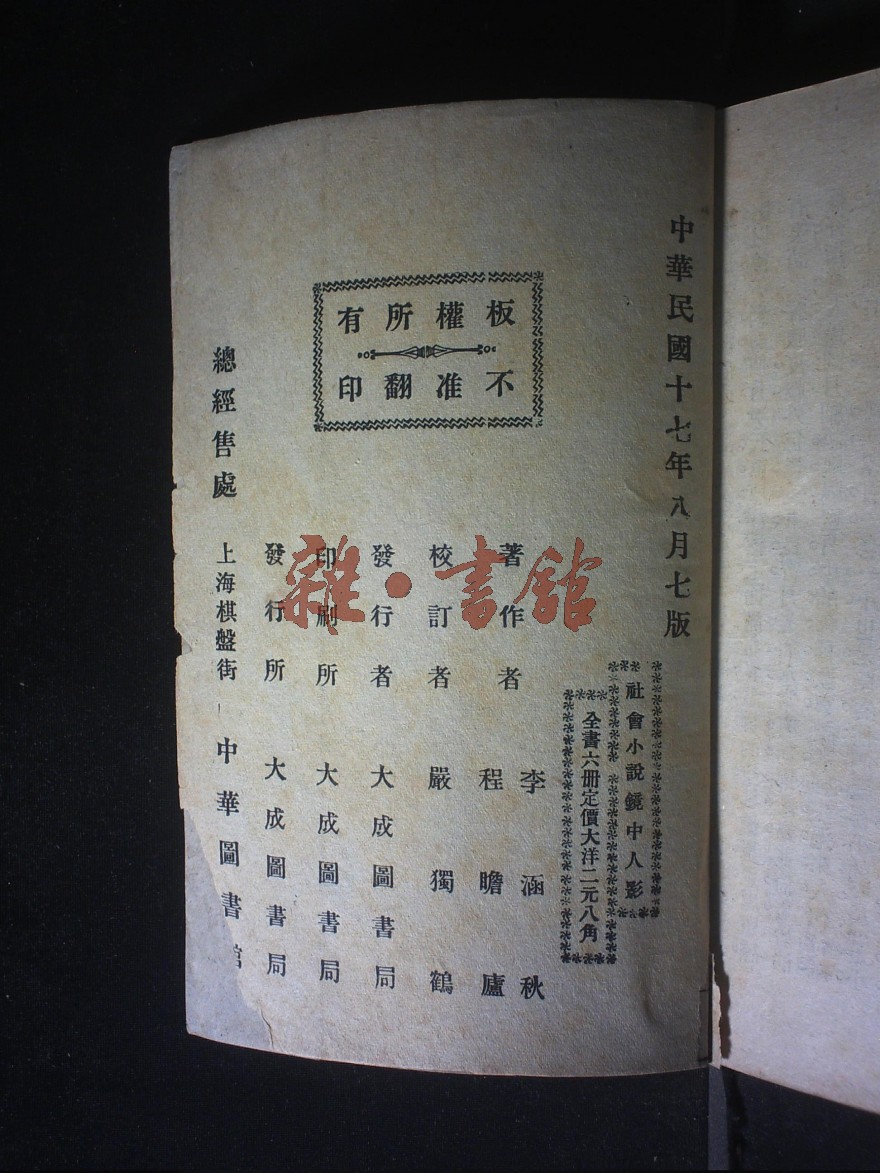 中華民國十七年八月七版
社會小說鏡中人影
全書六冊定價大洋二元八角
板權所有
不准翻印
著作者 李涵秋
程瞻廬
校訂者 嚴獨鶴
發行者 大成圖書局
印刷所 大成圖書局
發行所 大成圖書局
總經售處 上海棋盤街 中華圖書館
雜·書館